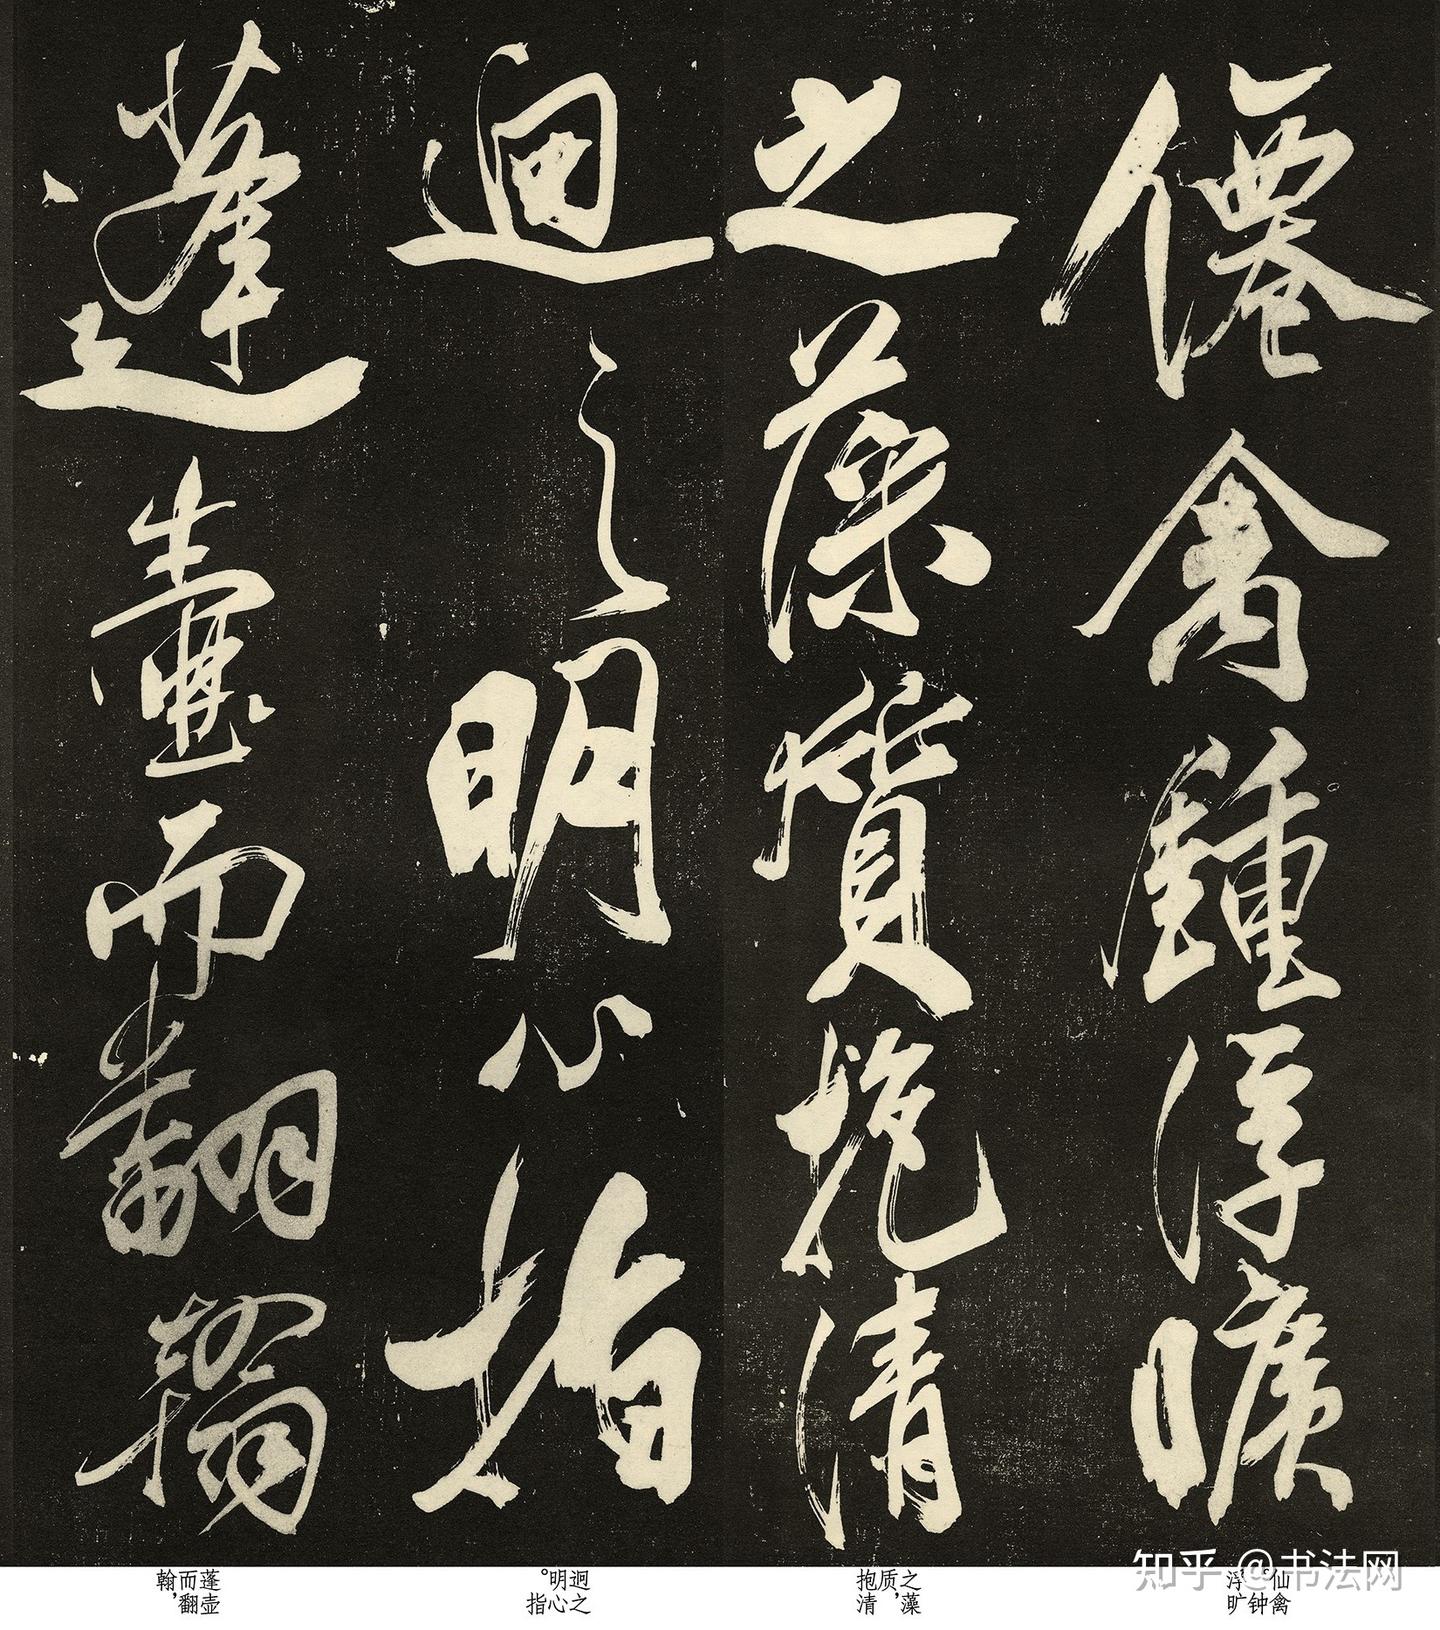 僊禽鍾浮曠
之藻質抱清
迥之明心指
蓬壺而翻翰
知乎 @书法网
仙禽。钟浮旷
之藻质，抱清
迥之明心。指
蓬壶而翻翰，